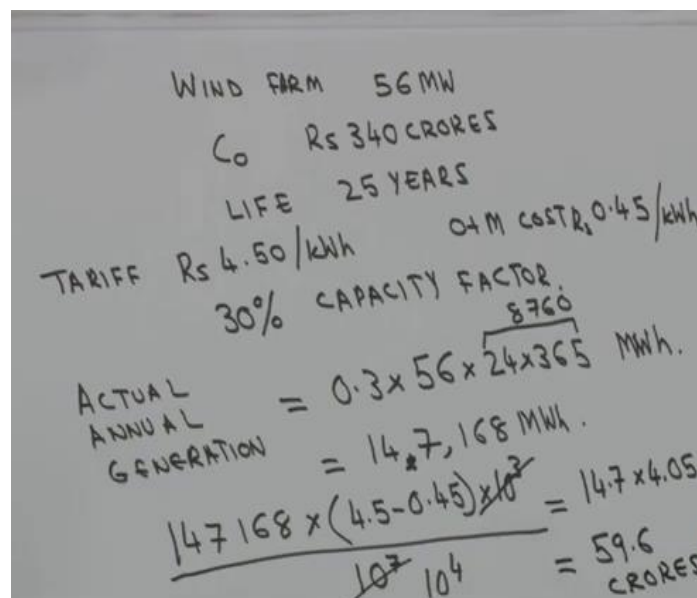 WIND FARM 56 MW
C₀ Rs 340 CRORES
LIFE 25 YEARS
TARIFF Rs 4.50/kWh O+M COST Rs 0.45/kWh
30% CAPACITY FACTOR.
8760
ACTUAL ANNUAL GENERATION = 0.3 × 56 × 24×365 MWh.
= 14.7,168 MWh.
147168 × (4.5-0.45) × 10³ = 14.7 × 4.05
10⁷ 10⁴ = 59.6 CRORES